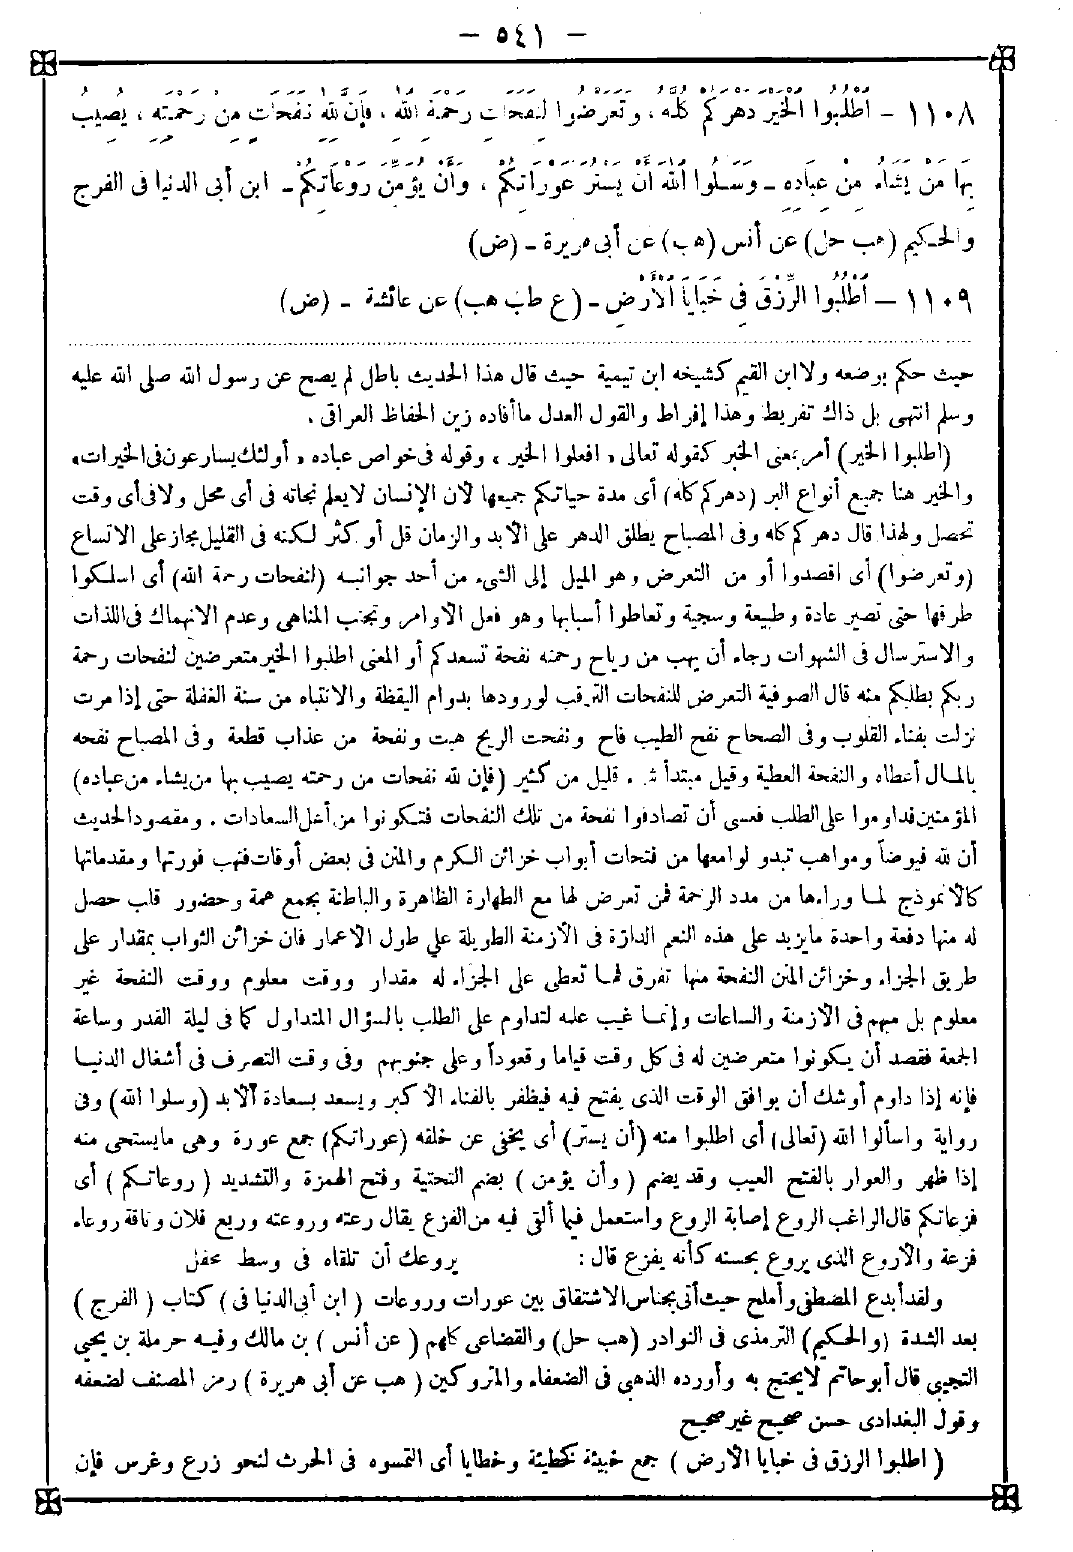 - ٥٤١ -
١١٠٨ - اُطْلُبُوا الْخَيْرَ دَهْرَكُمْ كُلَّهُ، وَتَعَرَّضُوا لِنَفَحَاتِ رَحْمَةِ اللهِ، فَإِنَّ لِلهِ نَفَحَاتٍ مِنْ رَحْمَتِهِ، يُصِيبُ
بِهَا مَنْ يَشَاءُ مِنْ عِبَادِهِ - وَسَلُوا اللهَ أَنْ يَسْتُرَ عَوْرَاتِكُمْ، وَأَنْ يُؤَمِّنَ رَوْعَاتِكُمْ - ابن أبى الدنيا فى الفرج
والحكيم (هب حل) عن أنس (هب) عن أبى هريرة - (ض)
١١٠٩ - اُطْلُبُوا الرِّزْقَ فِي خَبَايَا الْأَرْضِ - (ع طب هب) عن عائشة - (ض)
حيث حكم بوضعه ولا ابن القيم كشيخه ابن تيمية حيث قال هذا الحديث باطل لم يصح عن رسول الله صلى الله عليه
وسلم انتهى بل ذاك تفريط وهذا إفراط والقول العدل ما أفاده زين الحفاظ العراقى .
(اطلبوا الخير) أمر بمعنى الخبر كقوله تعالى « افعلوا الخير » وقوله فى خواص عباده « أولئك يسارعون فى الخيرات »
والخير هنا جميع أنواع البر (دهركم كله) أى مدة حياتكم جميعها لأن الإنسان لا يعلم نجاته فى أى محل ولا فى أى وقت
تحصل ولهذا قال دهركم كله وفى المصباح يطلق الدهر على الأبد والزمان قل أو كثر لكنه فى القليل مجاز على الاتساع
(وتعرضوا) أى اقصدوا أو من التعرض وهو الميل إلى الشىء من أحد جوانبه (لنفحات رحمة الله) أى اسلكوا
طرقها حتى تصير عادة وطبيعة وسجية وتعاطوا أسبابها وهو فعل الأوامر وتجنب المناهى وعدم الانهماك فى اللذات
والاسترسال فى الشهوات رجاء أن يهب من رياح رحمته نفحة تسعدكم أو المعنى اطلبوا الخير متعرضين لنفحات رحمة
ربكم بطلبكم منه قال الصوفية التعرض للنفحات الترقب لورودها بدوام اليقظة والانتباه من سنة الغفلة حتى إذا مرت
نزلت بفناء القلوب وفى الصحاح نفح الطيب فاح ونفحت الريح هبت ونفحة من عذاب قطعة وفى المصباح نفحه
بالمال أعطاه والنفحة العطية وقيل مبتدأ قليل من كثير (فإن لله نفحات من رحمته يصيب بها من يشاء من عباده)
المؤمنين فداوموا على الطلب فعسى أن تصادفوا نفحة من تلك النفحات فتكونوا من أهل السعادات . ومقصود الحديث
أن لله فيوضاً ومواهب تبدو لوامعها من فتحات أبواب خزائن الكرم والمنن فى بعض أوقات فتهب فورتها ومقدماتها
كالأنموذج لما وراءها من مدد الرحمة فمن تعرض لها مع الطهارة الظاهرة والباطنة بجمع همة وحضور قلب حصل
له منها دفعة واحدة ما يزيد على هذه النعم الدارة فى الأزمنة الطويلة على طول الأعمار فان خزائن الثواب بمقدار على
طريق الجزاء وخزائن المنن النفحة منها تفرق فما تعطى على الجزاء له مقدار ووقت معلوم ووقت النفحة غير
معلوم بل مبهم فى الأزمنة والساعات وإنما غيب علمه لتداوم على الطلب بالسؤال المتداول كما فى ليلة القدر وساعة
الجمعة فقصد أن يكونوا متعرضين له فى كل وقت قياما وقعوداً وعلى جنوبهم وفى وقت التصرف فى أشغال الدنيا
فإنه إذا داوم أوشك أن يوافق الوقت الذى يفتح فيه فيظفر بالفناء الأكبر ويسعد بسعادة الأبد (وسلوا الله) وفى
رواية واسألوا الله (تعالى) أى اطلبوا منه (أن يستر) أى يخفى عن خلقه (عوراتكم) جمع عورة وهى ما يستحى منه
إذا ظهر والعوار بالفتح العيب وقد يضم ( وأن يؤمن ) بضم التحتية وفتح الهمزة والتشديد ( روعاتكم ) أى
فزعاتكم قال الراغب الروع إصابة الروع واستعمل فيما ألقى فيه من الفزع يقال رعته وروعته وريع فلان وناقة روعاء
فزعة والأروع الذى يروع بحسنه كأنه يفزع قال : يروعك أن تلقاه فى وسط محفل
ولقد أبدع المصطفى وأملح حيث أتى بجناس الاشتقاق بين عورات وروعات ( ابن أبى الدنيا فى ) كتاب ( الفرج )
بعد الشدة (والحكيم) الترمذى فى النوادر (هب حل) والقضاعى كلهم ( عن أنس ) بن مالك وفيه حرملة بن يحيى
التجيبى قال أبو حاتم لا يحتج به وأورده الذهبى فى الضعفاء والمتروكين ( هب عن أبى هريرة ) رمز المصنف لضعفه
وقول البغدادى حسن صحيح غير صحيح
( اطلبوا الرزق فى خبايا الأرض ) جمع خبيئة كخطيئة وخطايا أى التمسوه فى الحرث لنحو زرع وغرس فإن